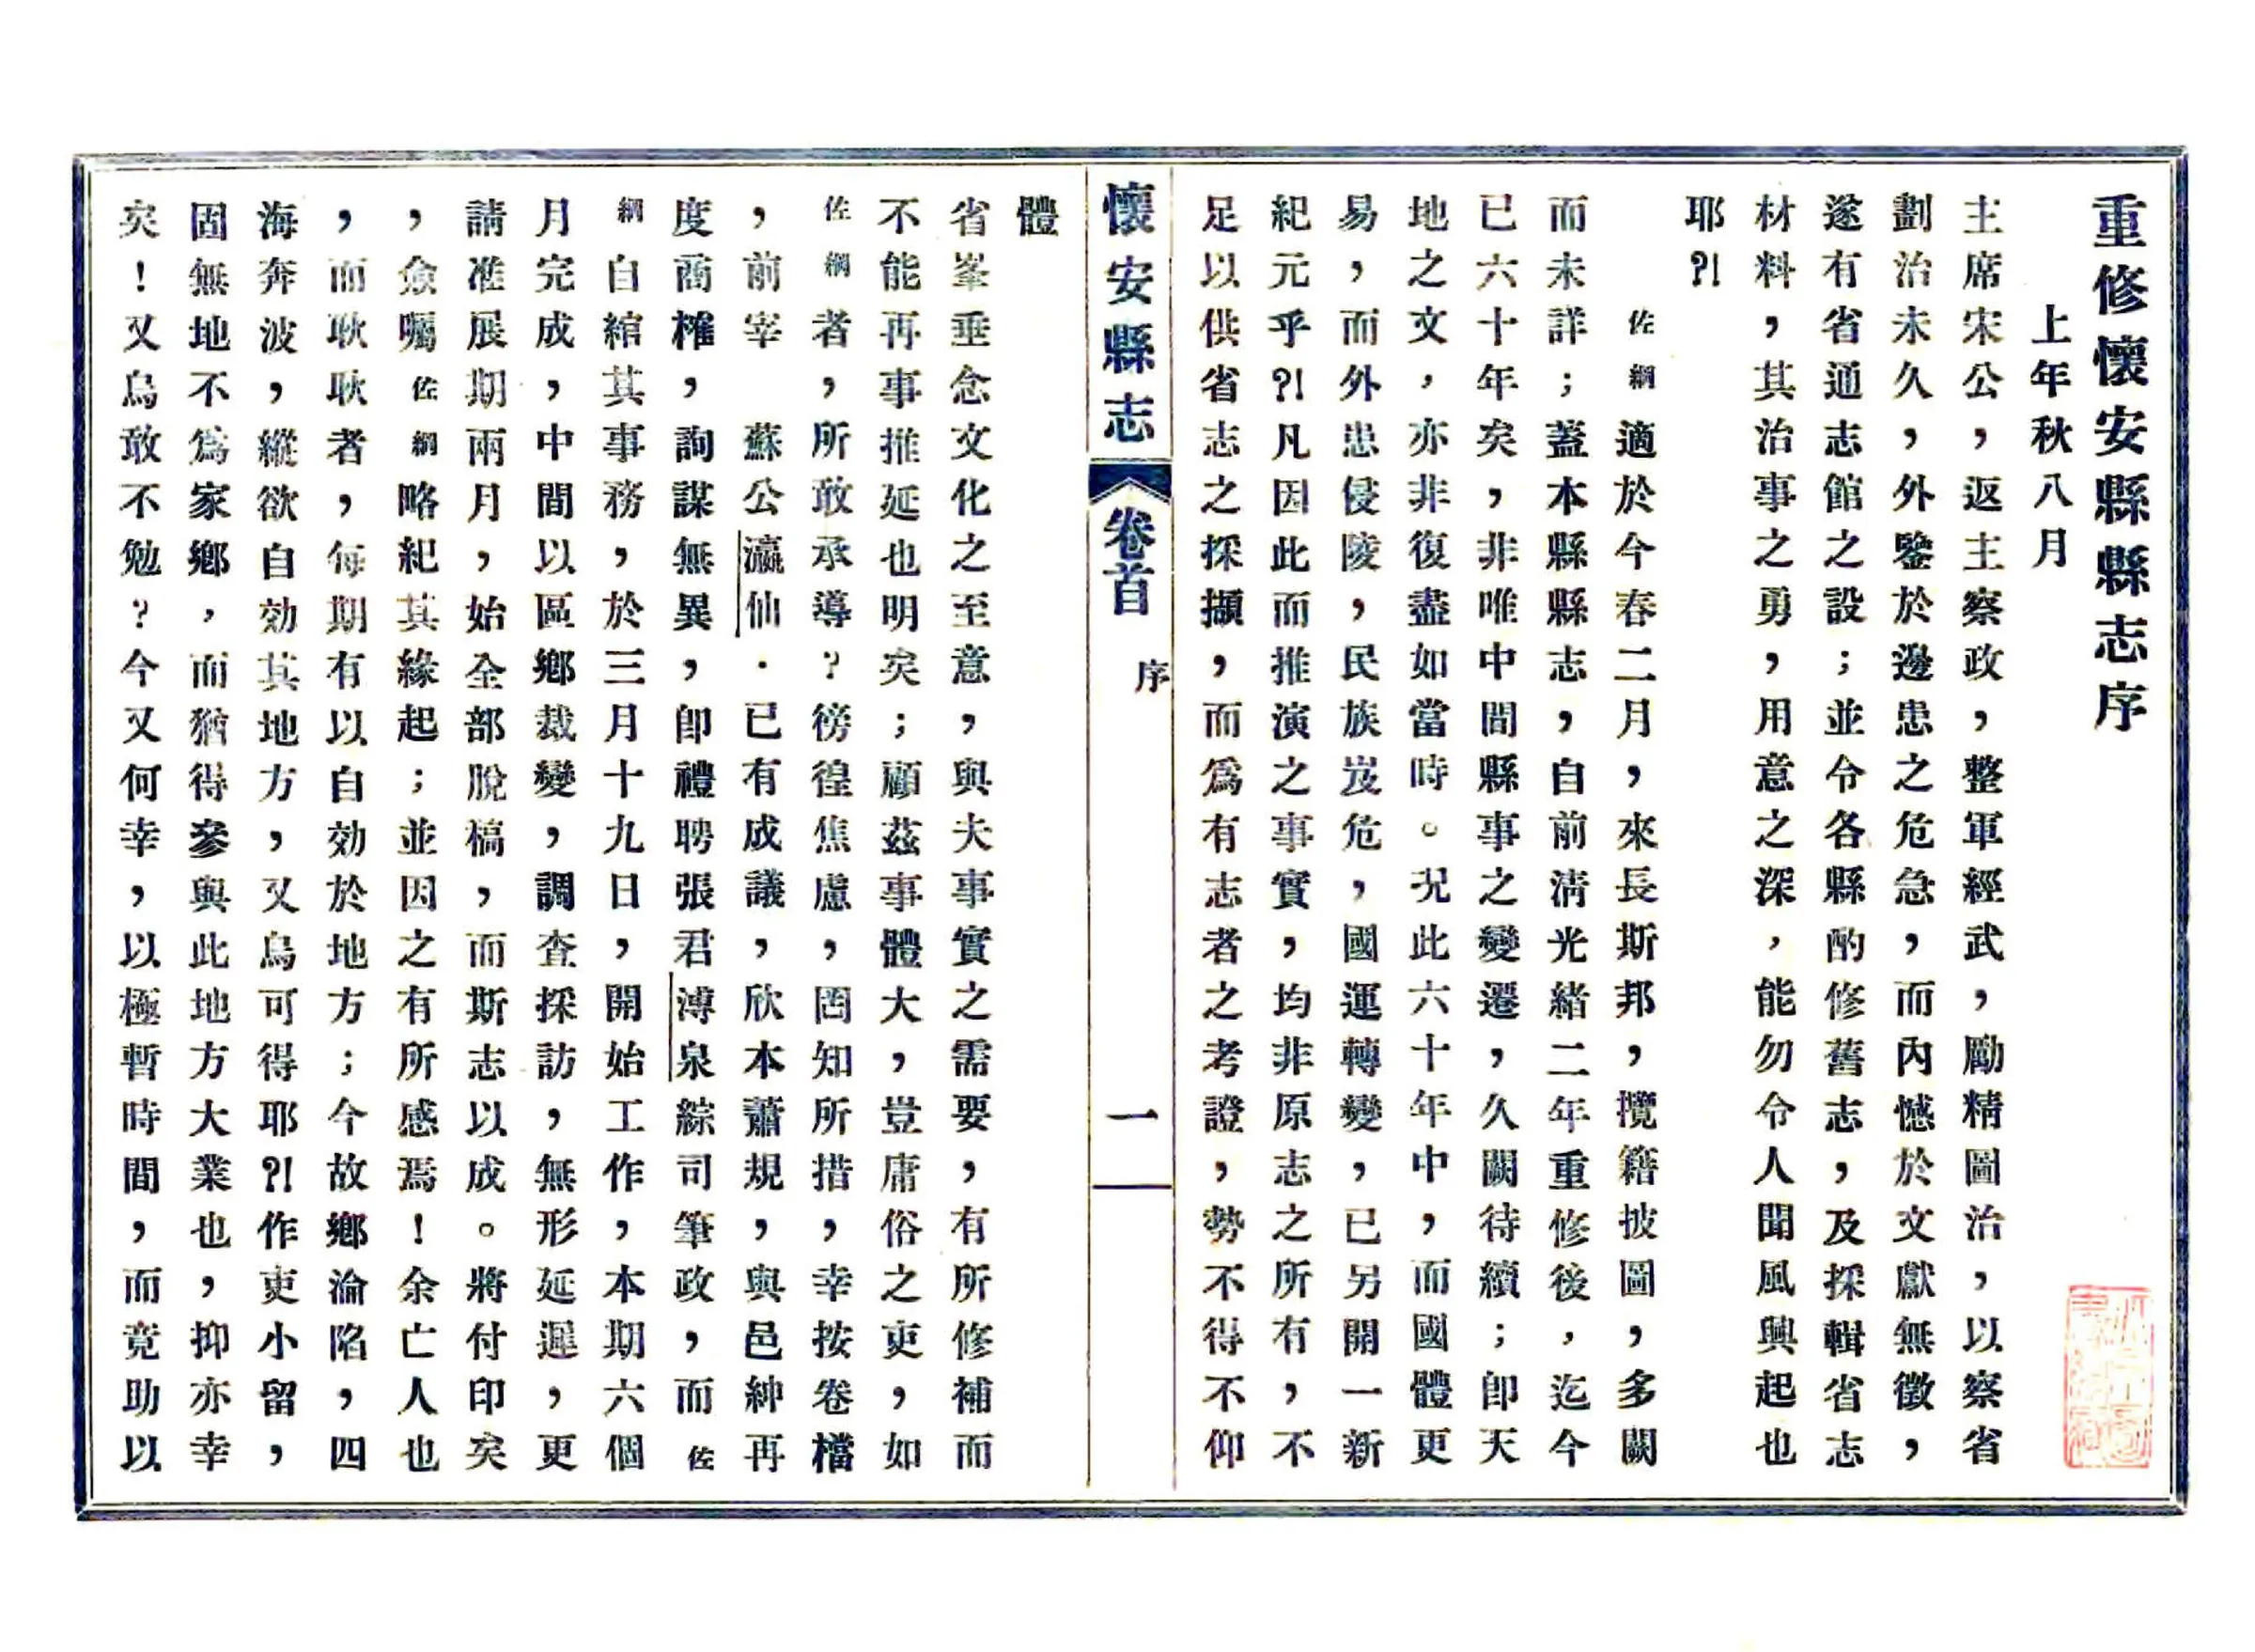 重修懷安縣縣志序
上年秋八月
主席宋公，返主察政，整軍經武，勵精圖治，以察省
劃治未久，外鑒於邊患之危急，而內憾於文獻無徵，
遂有省通志館之設；並令各縣酌修舊志，及採輯省志
材料，其治事之勇，用意之深，能勿令人聞風興起也
耶?!
佐綱適於今春二月，來長斯邦，攬籍披圖，多闕
而未詳；蓋本縣縣志，自前清光緒二年重修後，迄今
已六十年矣，非唯中間縣事之變遷，久闕待續；卽天
地之文，亦非復盡如當時。況此六十年中，而國體更
易，而外患侵陵，民族岌危，國運轉變，已另開一新
紀元乎?!凡因此而推演之事實，均非原志之所有，不
足以供省志之採擷，而爲有志者之考證，勢不得不仰
懷安縣志 卷首 序 一
體
省峯垂念文化之至意，與夫事實之需要，有所修補而
不能再事推延也明矣；顧茲事體大，豈庸俗之吏，如
佐綱者，所敢承導?徬徨焦慮，罔知所措，幸按卷檔
，前宰 蘇公瀛仙·已有成議，欣本蕭規，與邑紳再
度商榷，詢謀無異，卽禮聘張君溥泉綜司筆政，而佐
綱自綰其事務，於三月十九日，開始工作，本期六個
月完成，中間以區鄉裁變，調查採訪，無形延遲，更
請准展期兩月，始全部脫稿，而斯志以成。將付印矣
，僉囑佐綱略紀其緣起；並因之有所感焉!余亡人也
，而耿耿者，每期有以自効於地方；今故鄉淪陷，四
海奔波，縱欲自効其地方，又烏可得耶?!作吏小留，
固無地不爲家鄉，而猶得參與此地方大業也，抑亦幸
矣!又烏敢不勉?今又何幸，以極暫時間，而竟助以